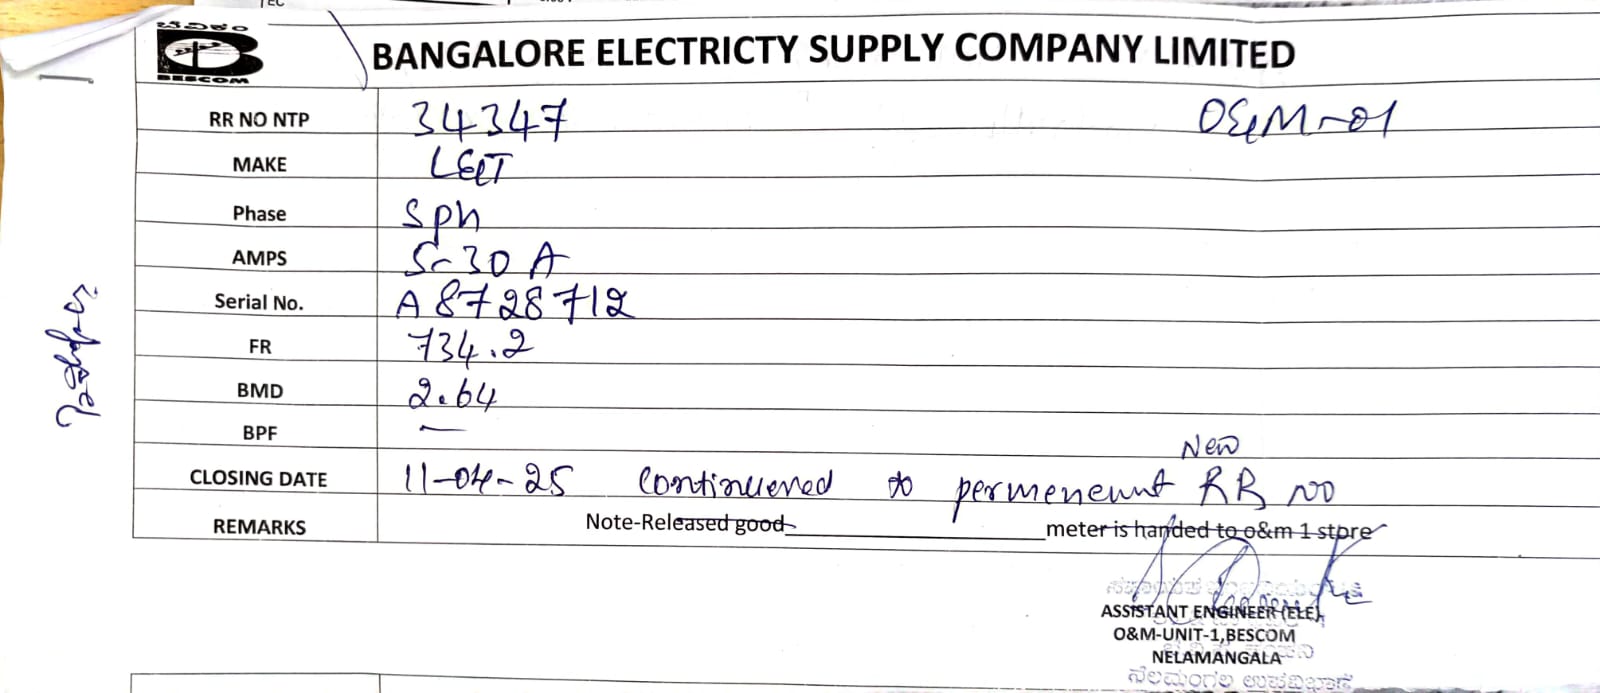 ಬೆವಿಕಂ
BESCOM
BANGALORE ELECTRICTY SUPPLY COMPANY LIMITED
RR NO NTP 34347 O&M-01
MAKE L&T
Phase Sph
AMPS 5-30 A
Serial No. A 8728712
FR 734.2
BMD 2.64
BPF —
New
CLOSING DATE 11-04-25 continuened to permenennt RR NO
REMARKS Note-Released good meter is handed to o&m 1 store
ASSISTANT ENGINEER (ELE),
O&M-UNIT-1,BESCOM
NELAMANGALA
ನೆಲಮಂಗಲ ಉಪವಿಭಾಗ